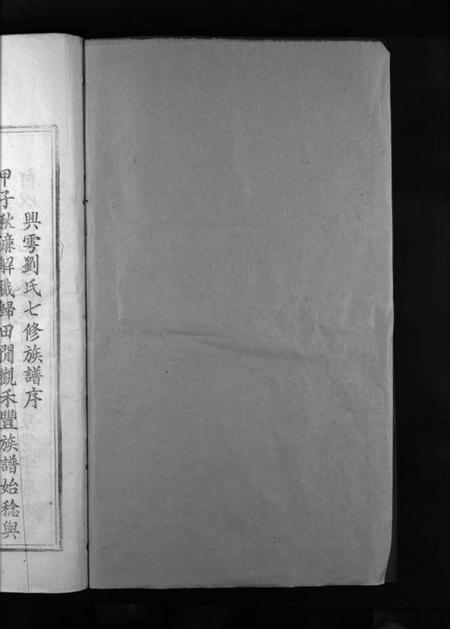 興雩劉氏七修族譜序
甲子秋濂解職歸田閒觀禾豐族譜始稔與